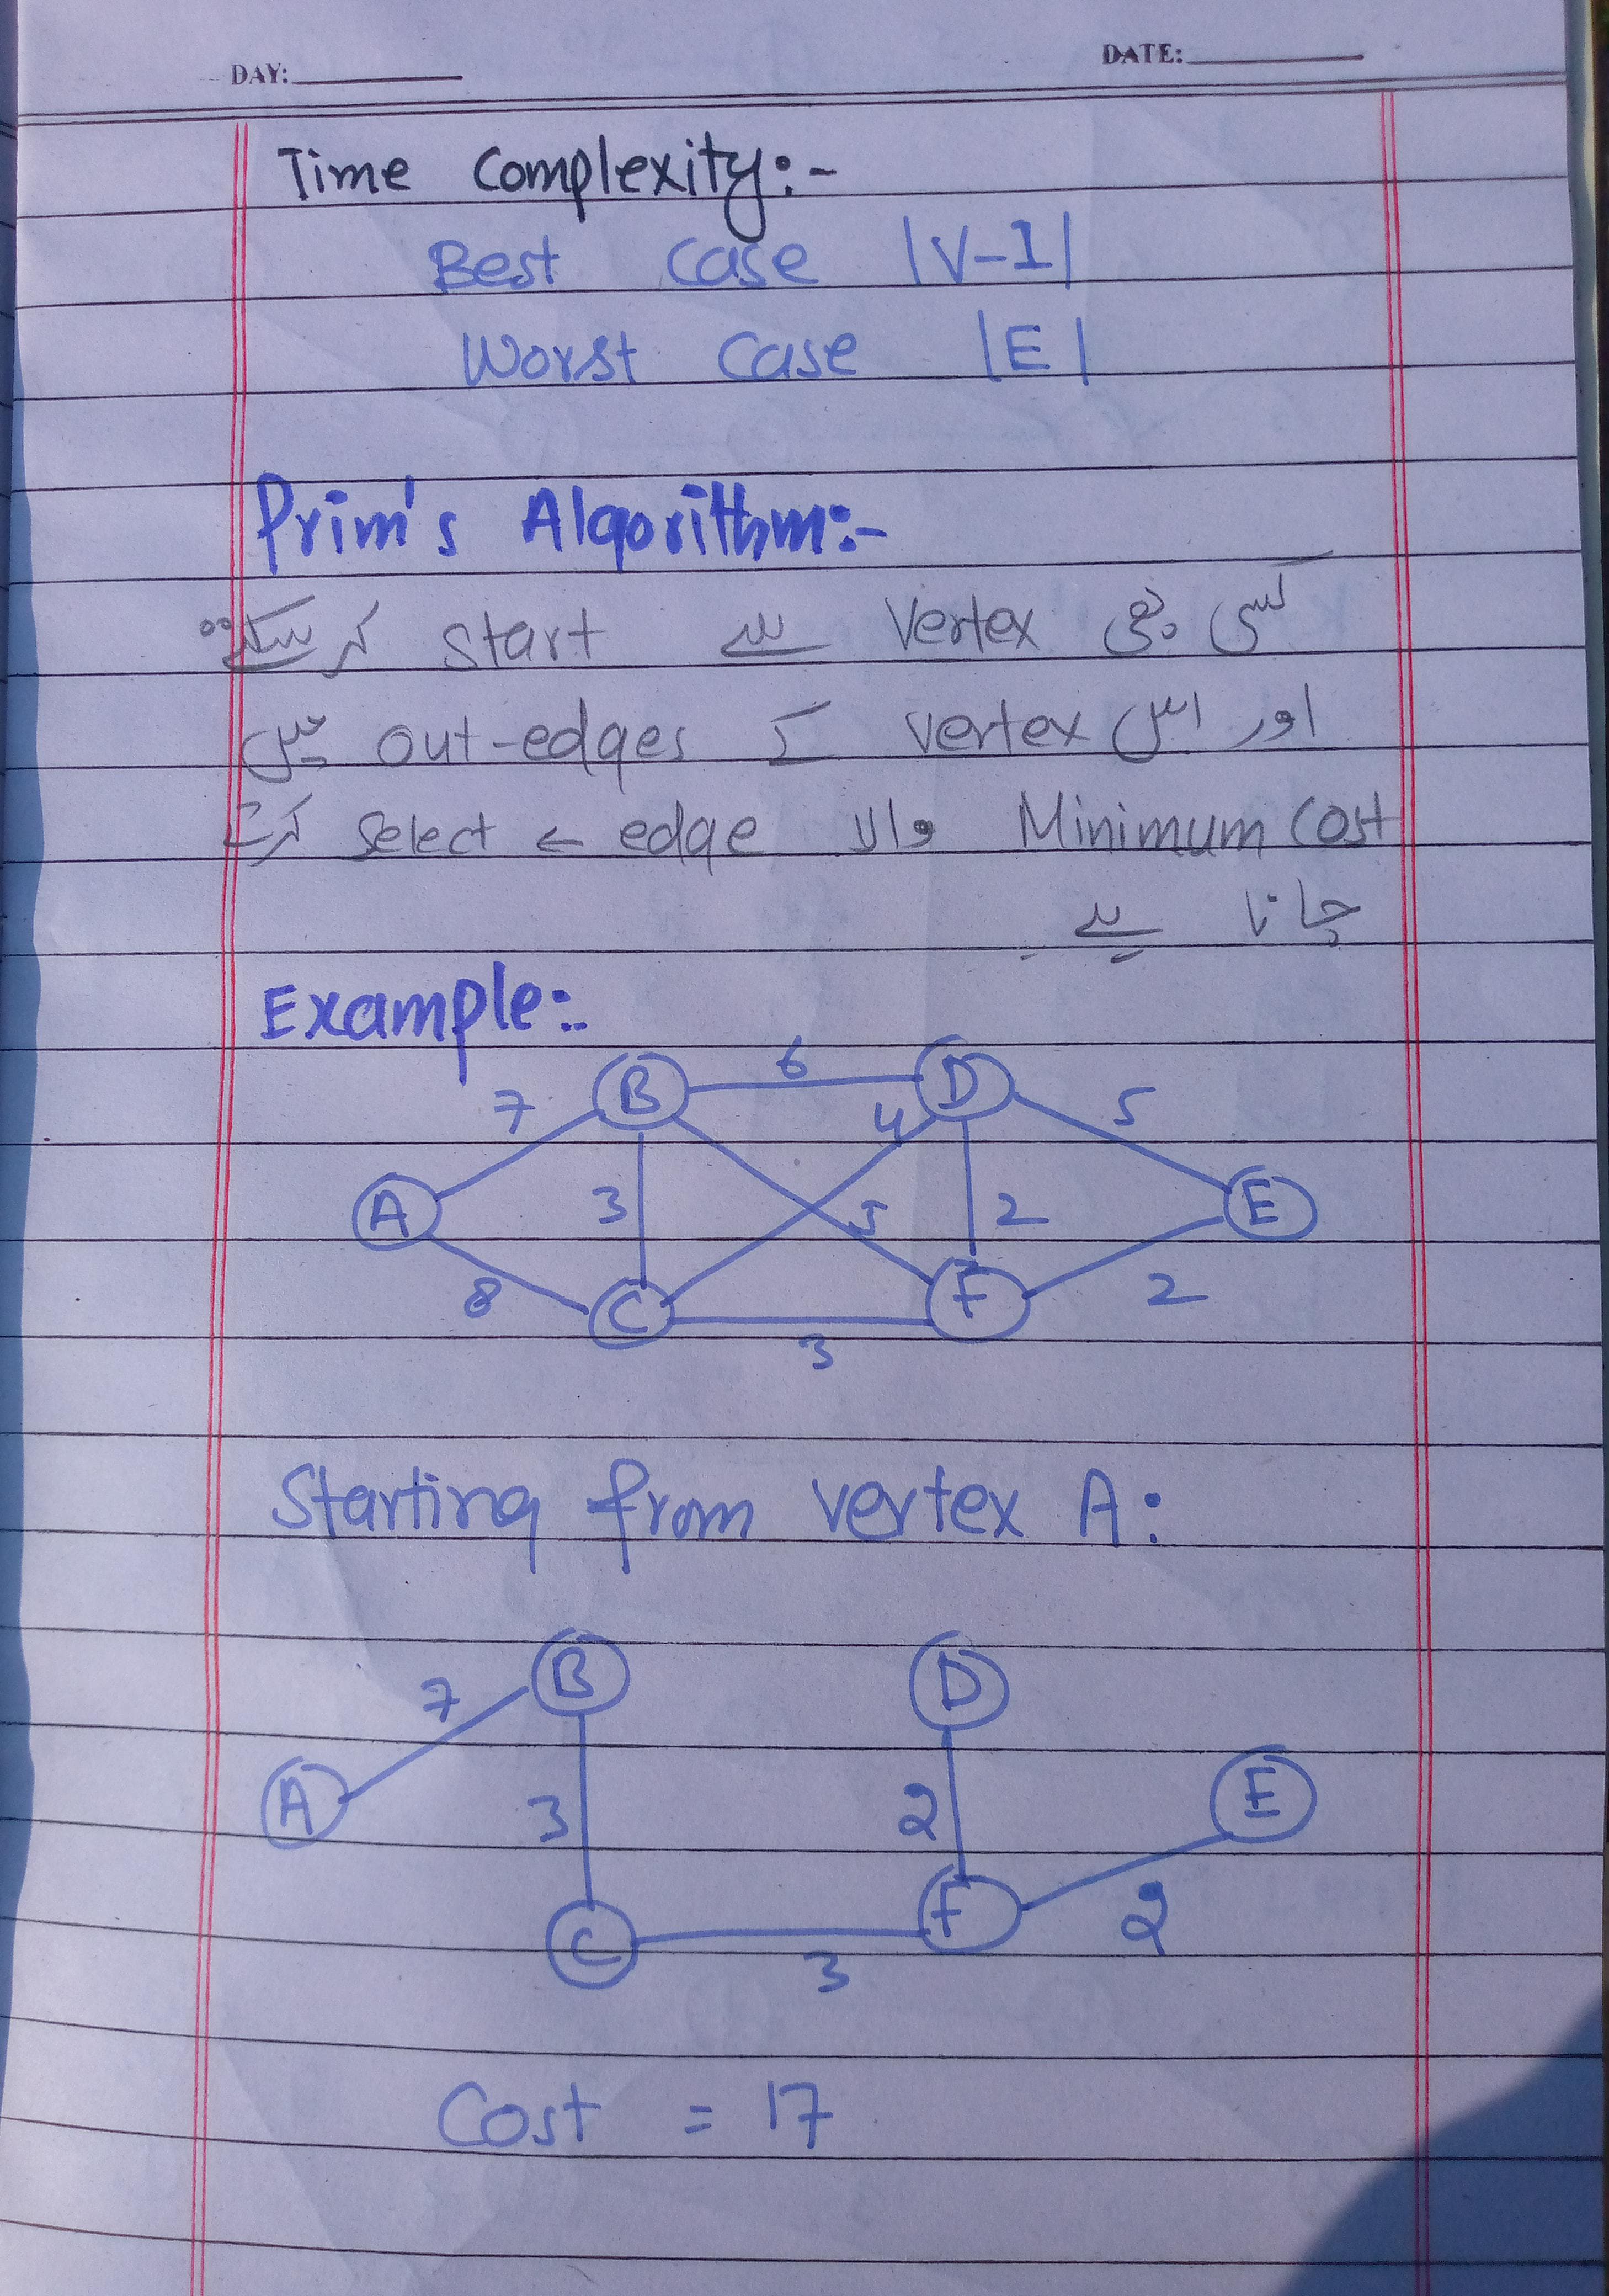 DAY: DATE:
Time Complexity:-
Best Case |V-1|
Worst Case |E|
Prim's Algorithm:-
کسی بھی Vertex سے start کر سکتے
اور اس vertex کے out-edges میں
Minimum Cost والا edge ← select کرتے
جانا ہے۔
Example:-
B 6 D
7 4 5
A 3 5 2 E
8 C F 2
3
Starting from vertex A:
B D
7
A 3 2 E
C F 2
3
Cost = 17